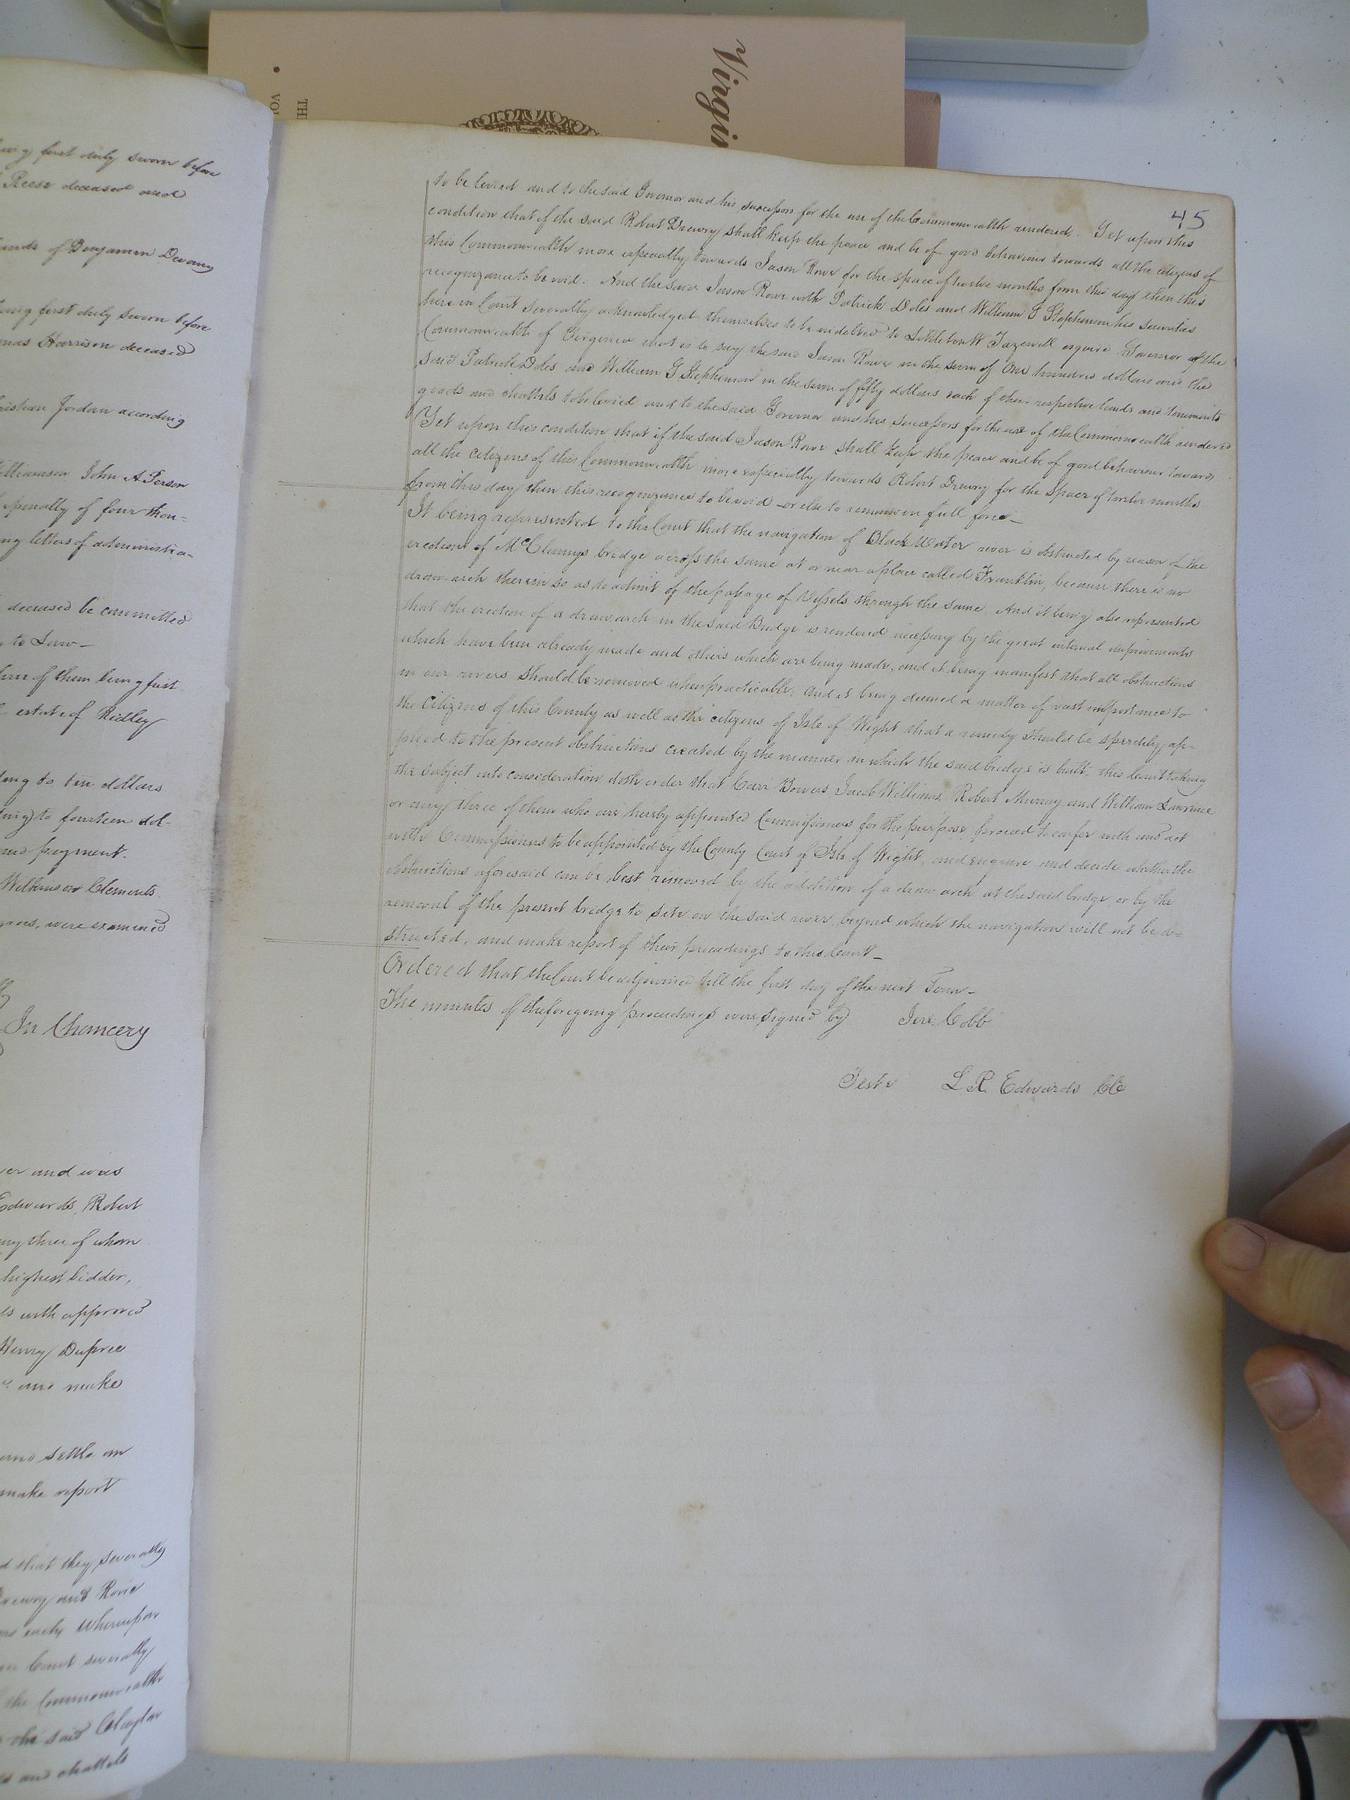 Virgin
TH
VO
first duly sworn before
Reese deceased and
hands of Benjamin Devany
being first duly sworn before
Thomas Harrison deceased
Jordan according
Williamson John A. Person
penalty of four thou-
letters of administra-
deceased be committed
to Law
three of them being first
estate of Ridley
ten dollars
to fourteen dol-
payment.
Williamson Clements
were examined
In Chancery
and was
Edwards, Robert
any three of whom
highest bidder,
with approved
Henry Dupree
and make
and settle an
make report
that they severally
Drewry and Rowe
early whereupon
Court severally
the Commonwealth
the said
and chattels
45
to be levied and to the said Governor and his successors for the use of the Commonwealth rendered. Yet upon this
condition that if the said Robert Drewry shall keep the peace and be of good behaviour towards all the citizens of
this Commonwealth more especially towards Jason Rowe for the space of twelve months from this day then this
recognizance to be void. And the said Jason Rowe with Patrick Doles and William G Stephenson his securities
here in Court severally acknowledged themselves to be indebted to Littleton W Tazewell esquire Governor of the
Commonwealth of Virginia that is to say the said Jason Rowe in the sum of One hundred dollars and the
said Patrick Doles and William G Stephenson in the sum of fifty dollars each of their respective lands and tenements
goods and chattels to be levied and to the said Governor and his successors for the use of the Commonwealth rendered
Yet upon this condition that if the said Jason Rowe shall keep the peace and be of good behaviour towards
all the citizens of this Commonwealth more especially towards Robert Drewry for the space of twelve months
from this day then this recognizance to be void or else to remain in full force
It being represented to the Court that the navigation of Black Water river is obstructed by reason of the
erection of McClennys bridge across the same at or near a place called Franklin, because there is no
draw arch therein so as to admit of the passage of Vessels through the same. And it being also represented
that the erection of a draw arch in the said Bridge is rendered necessary by the great internal improvements
which have been already made and others which are being made, and it being manifest that all obstructions
in our rivers should be removed when practicable, and it being deemed a matter of vast importance to
the citizens of this County as well as the citizens of Isle of Wight that a remedy should be speedily ap-
plied to the present obstructions created by the manner in which the said bridge is built, this Court taking
the subject into consideration doth order that Carr Bowers Jacob Williams, Robert Murray and William Lawrence
or any three of them who are hereby appointed Commissioners for the purpose, proceed to confer with and act
with Commissioners to be appointed by the County Court of Isle of Wight, and enquire and decide whether the
obstructions aforesaid can be best removed by the addition of a draw arch at the said bridge or by the
removal of the present bridge to site on the said river beyond which the navigation will not be ob-
structed, and make report of their proceedings to this Court
Ordered that the Court be adjourned till the first day of the next Term
The minutes of the foregoing proceedings were signed by Jere, Cobb
Teste L R Edwards Clk